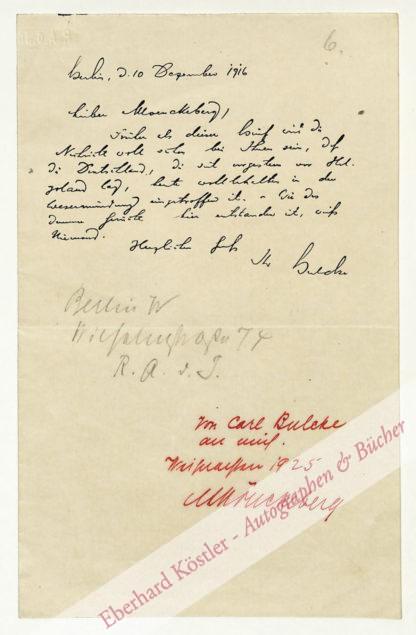 6.
Berlin, d. 10 Dezember 1916
Lieber Moenckeberg,
Früher als dieser Brief wird die
Nachricht wohl schon bei Ihnen sein, daß
die Deutschland, die seit vorgestern vor Hel-
goland lag, heute wohlbehalten in der
Wesermündung eingetroffen ist. Wie das
dumme Gerücht hier entstanden ist, weiß
Niemand.
Herzlichen Gruß
Ihr Bulcke
Berlin W
Wilhelmstraße 74
R. A. d. I.
Von Carl Bulcke
an mich.
Weihnachten 1925
MMönckeberg
Eberhard Köstler - Autographen & Bücher